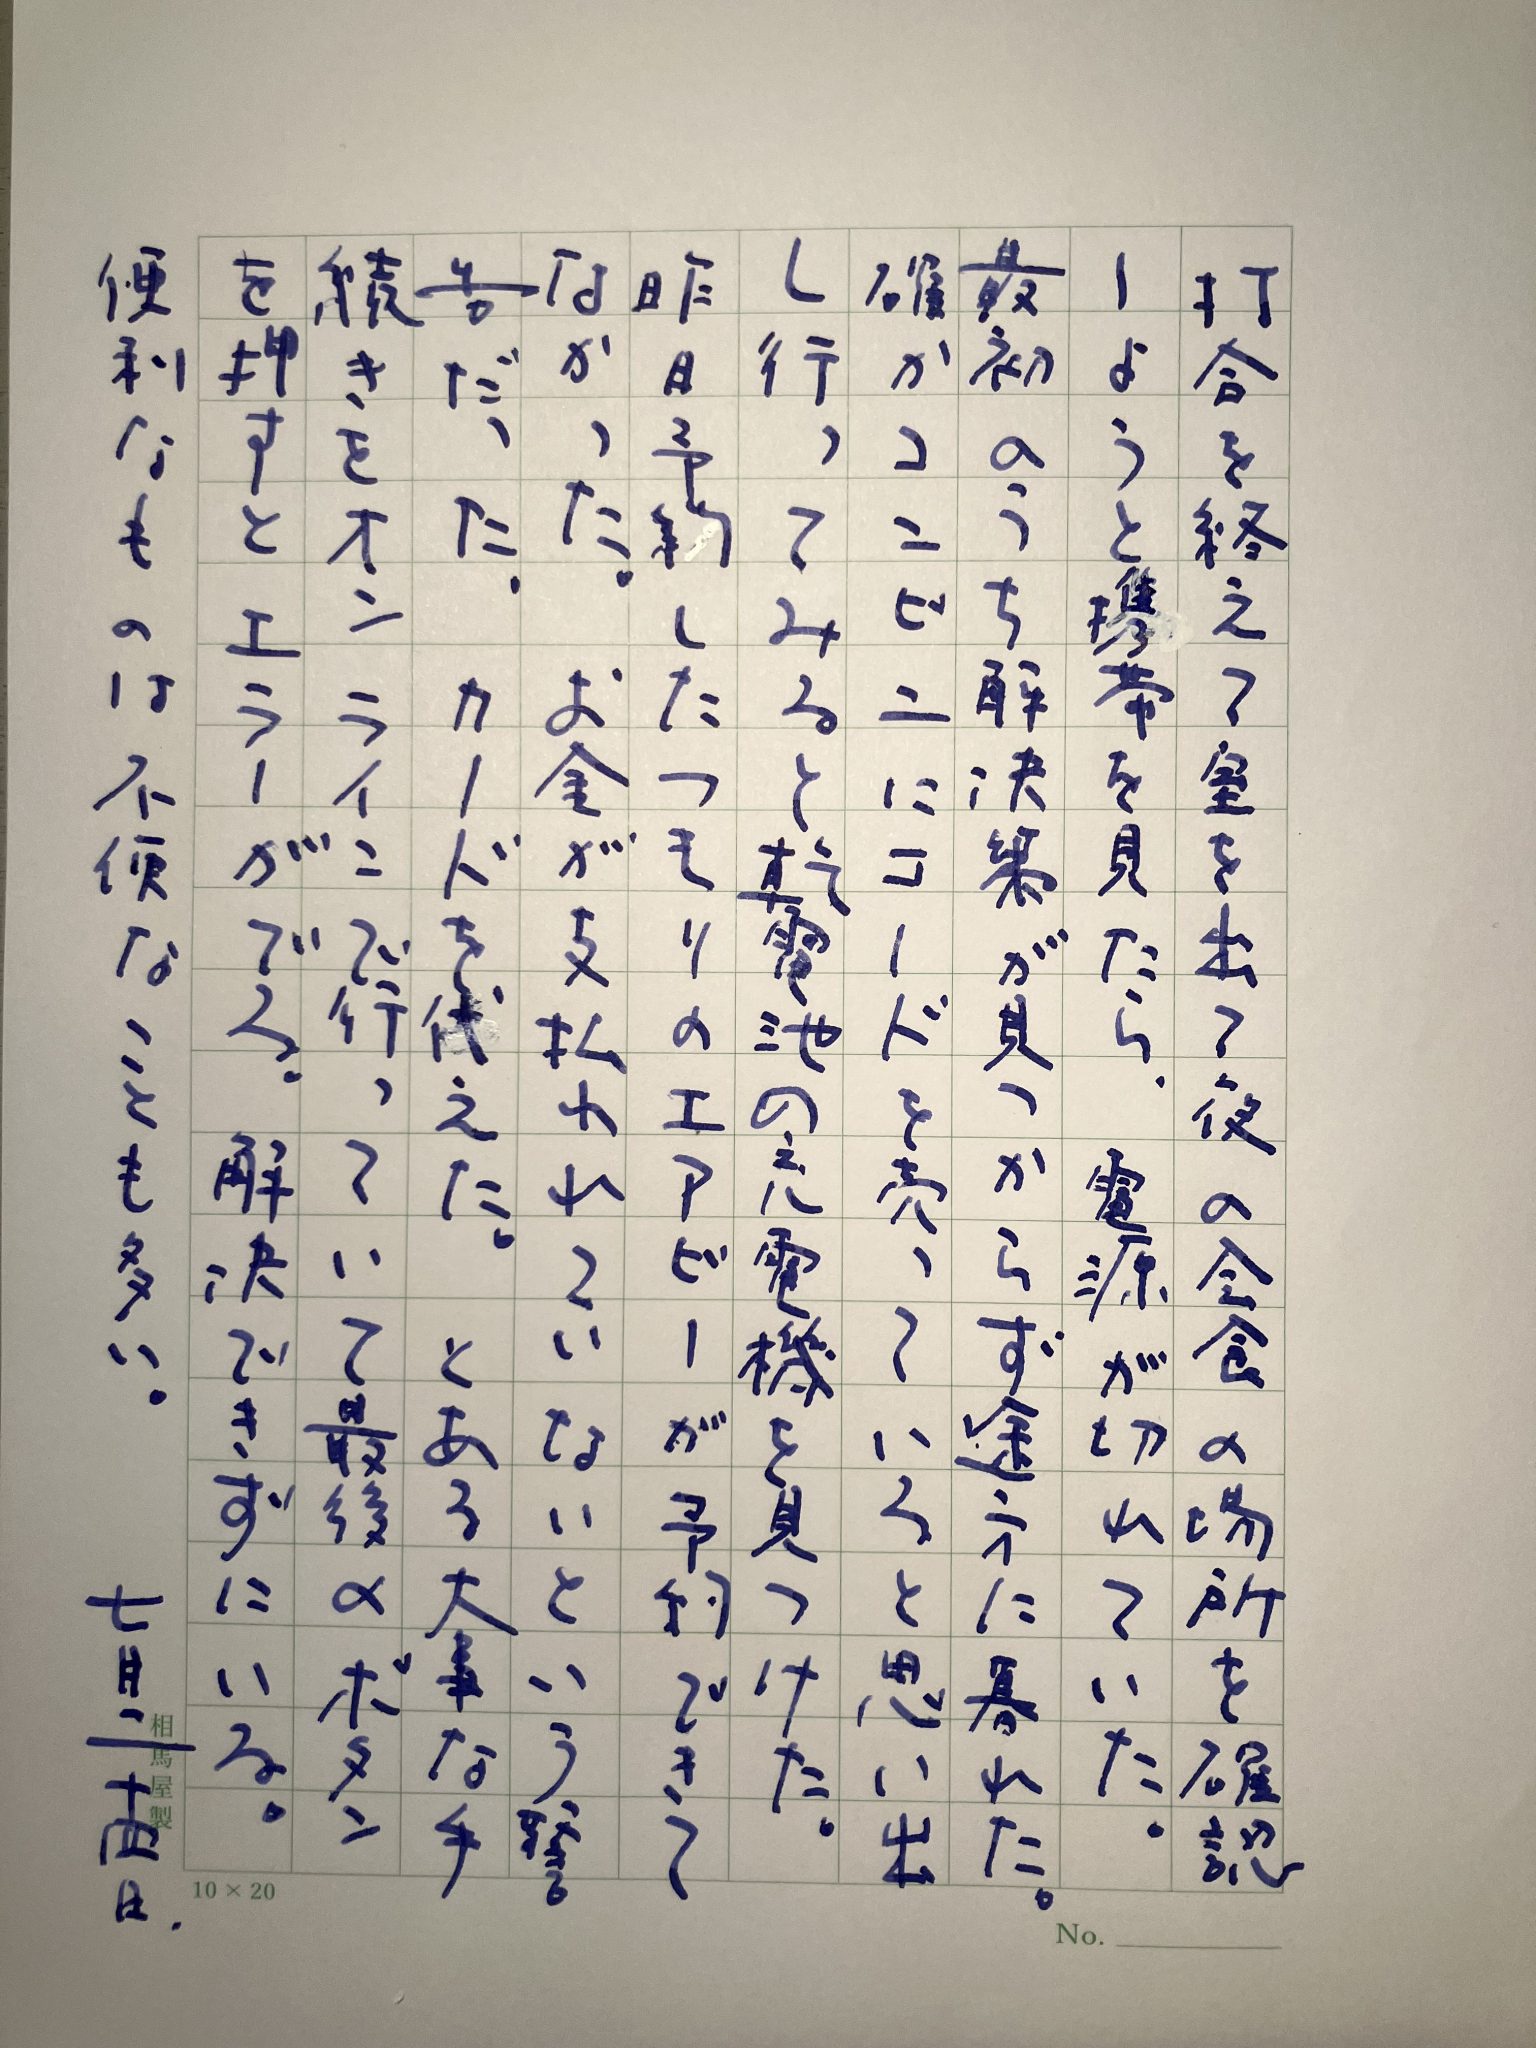 打合を終えて室を出て夜の会食の場所を確認
しようと携帯を見たら、電源が切れていた。
最初のうち解決策が見つからず途方に暮れた。
確かコンビニにコードを売っていると思い出
し行ってみると乾電池の充電機を見つけた。
昨日予約したつもりのエアビーが予約できて
なかった。お金が支払われていないという警
告だった。カードを代えた。とある大事な手
続きをオンラインで行っていて最後のボタン
を押すとエラーがでる。解決できずにいる。
便利なものは不便なことも多い。
七月二十四日.
相馬屋製
10×20
No.